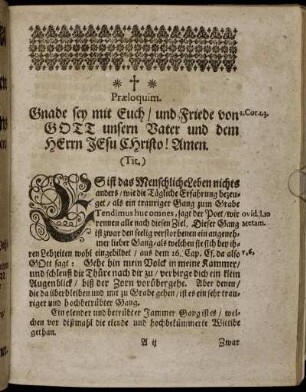 Præloquim.
Gnade sey mit Euch / und Friede von 2.Cor.1.3.
GOTT unsern Vater und dem
HErrn JEsu CHristo! Amen.
(Tit,)
ES ist das Menschliche Leben nichts
anders / wie die Tägliche Erfahrung bezeu-
get / als ein trauriger Gang zum Grabe
Tendimus huc omnes, sagt der Poet / wir ovid. l.10
rennen alle nach diesen Ziel. Dieser Gang
ist zwar den seelig verstorbenen ein angeneh-
mer lieber Gang / als welchen sie sich bey ih-
ren Lebzeiten wohl eingebildet / aus dem 26. Cap. Es. da alss
GOtt sagt: Gehe hin mein Volck in meine Kammer /
und schleuß die Thüre nach dir zu / verbirge dich ein klein
Augenblick / biß der Zorn vorübergehe. Aber denen /
die da überbleiben und mit zu Grabe gehen / ist es ein sehr trau-
riger und hochbetrübter Gang.
Ein elender und betrübter Jammer Gang ist es / wel-
chen vor dißmahl die elende und hochbekümmerte Wittibe
gethan.
A ij Zwar